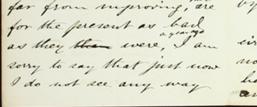 far from improving, are
for the present as bad
as they than were, I am
sorry to say that just now
I do not see any way